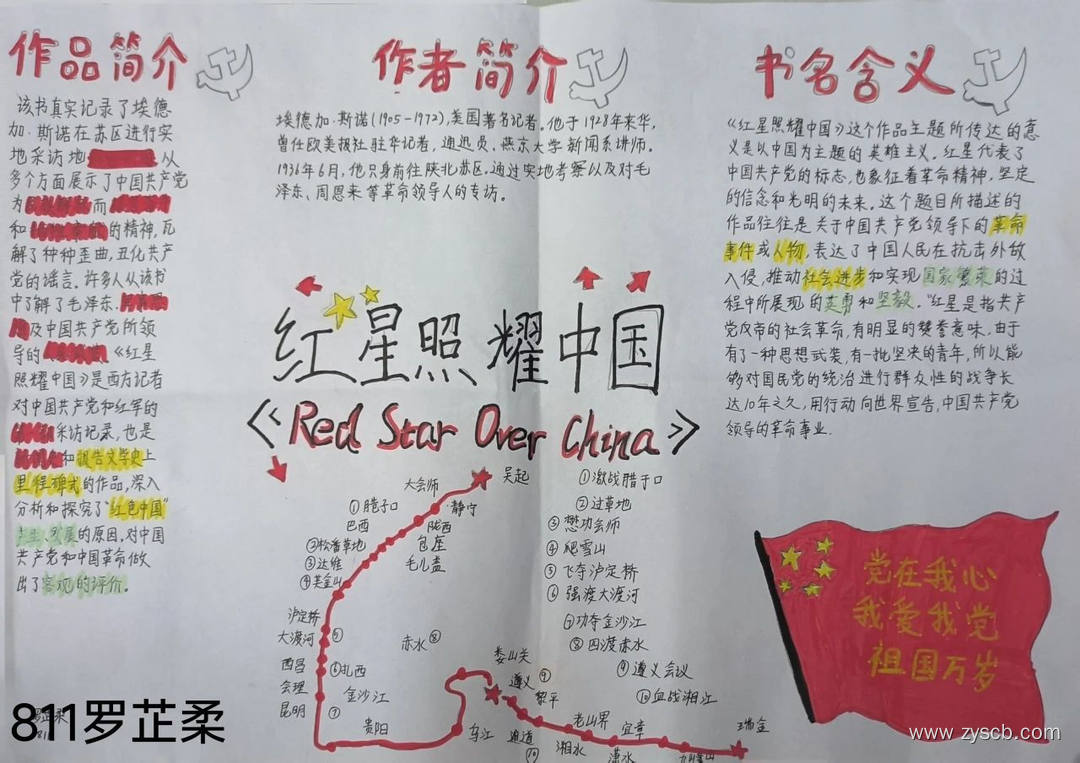 作品简介
该书真实记录了埃德
加·斯诺在苏区进行实
地采访地 从
多个方面展示了中国共产党
为 而
和 的精神，瓦
解了种种歪曲，丑化共产
党的谣言。许多人从该书
中了解了毛泽东、
及中国共产党所领
导的 《红星
照耀中国》是西方记者
对中国共产党和红军的
采访记录，也是
和报告文学史上
里程碑式的作品，深入
分析和探究了"红色中国"
产生、发展的原因，对中国
共产党和中国革命做
出了客观的评价。
作者简介
埃德加·斯诺(1905-1972)，美国著名记者。他于1928年来华，
曾任欧美报社驻华记者，通迅员、燕京大学新闻系讲师。
1936年6月，他只身前往陕北苏区，通过实地考察以及对毛
泽东、周恩来等革命领导人的专访。
书名含义
《红星照耀中国》这个作品主题所传达的意
义是以中国为主题的英雄主义。红星代表了
中国共产党的标志，也象征着革命精神，坚定
的信念和光明的未来。这个题目所描述的
作品往往是关于中国共产党领导下的革命
事件或人物，表达了中国人民在抗击外敌
入侵，推动社会进步和实现国家繁荣的过
程中所展现的英勇和坚毅。"红星是指共产
党成帝的社会革命，有明显的赞誉意味，由于
有了一种思想武装，有一批坚决的青年，所以能
够对国民党的统治进行群众性的战争长
达10年之久，用行动向世界宣告，中国共产党
领导的革命事业.
红星照耀中国
《Red Star Over China》
大会师
吴起
静宁
①腊子口
巴西
陇西
包座
毛儿盖
②松潘草地
③达维
④芙金山
泸定桥
大渡河
⑤
西昌
⑥扎西
会理
金沙江
昆明
⑦
贵阳
赤水⑧
娄山关
遵义
⑨
黎平
乌江
通道
⑩
老山界
湘水
宜章
潇水
瑞金
①激战腊子口
②过草地
③懋功会师
④爬雪山
⑤飞夺泸定桥
⑥强渡大渡河
⑦巧夺金沙江
⑧四渡赤水
⑨遵义会议
⑩血战湘江
党在我心
我爱我党
祖国万岁
811罗芷柔
www.zyscb.com